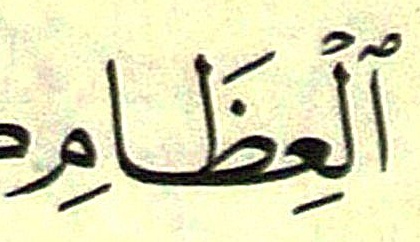 ٱلْعِظَامِ